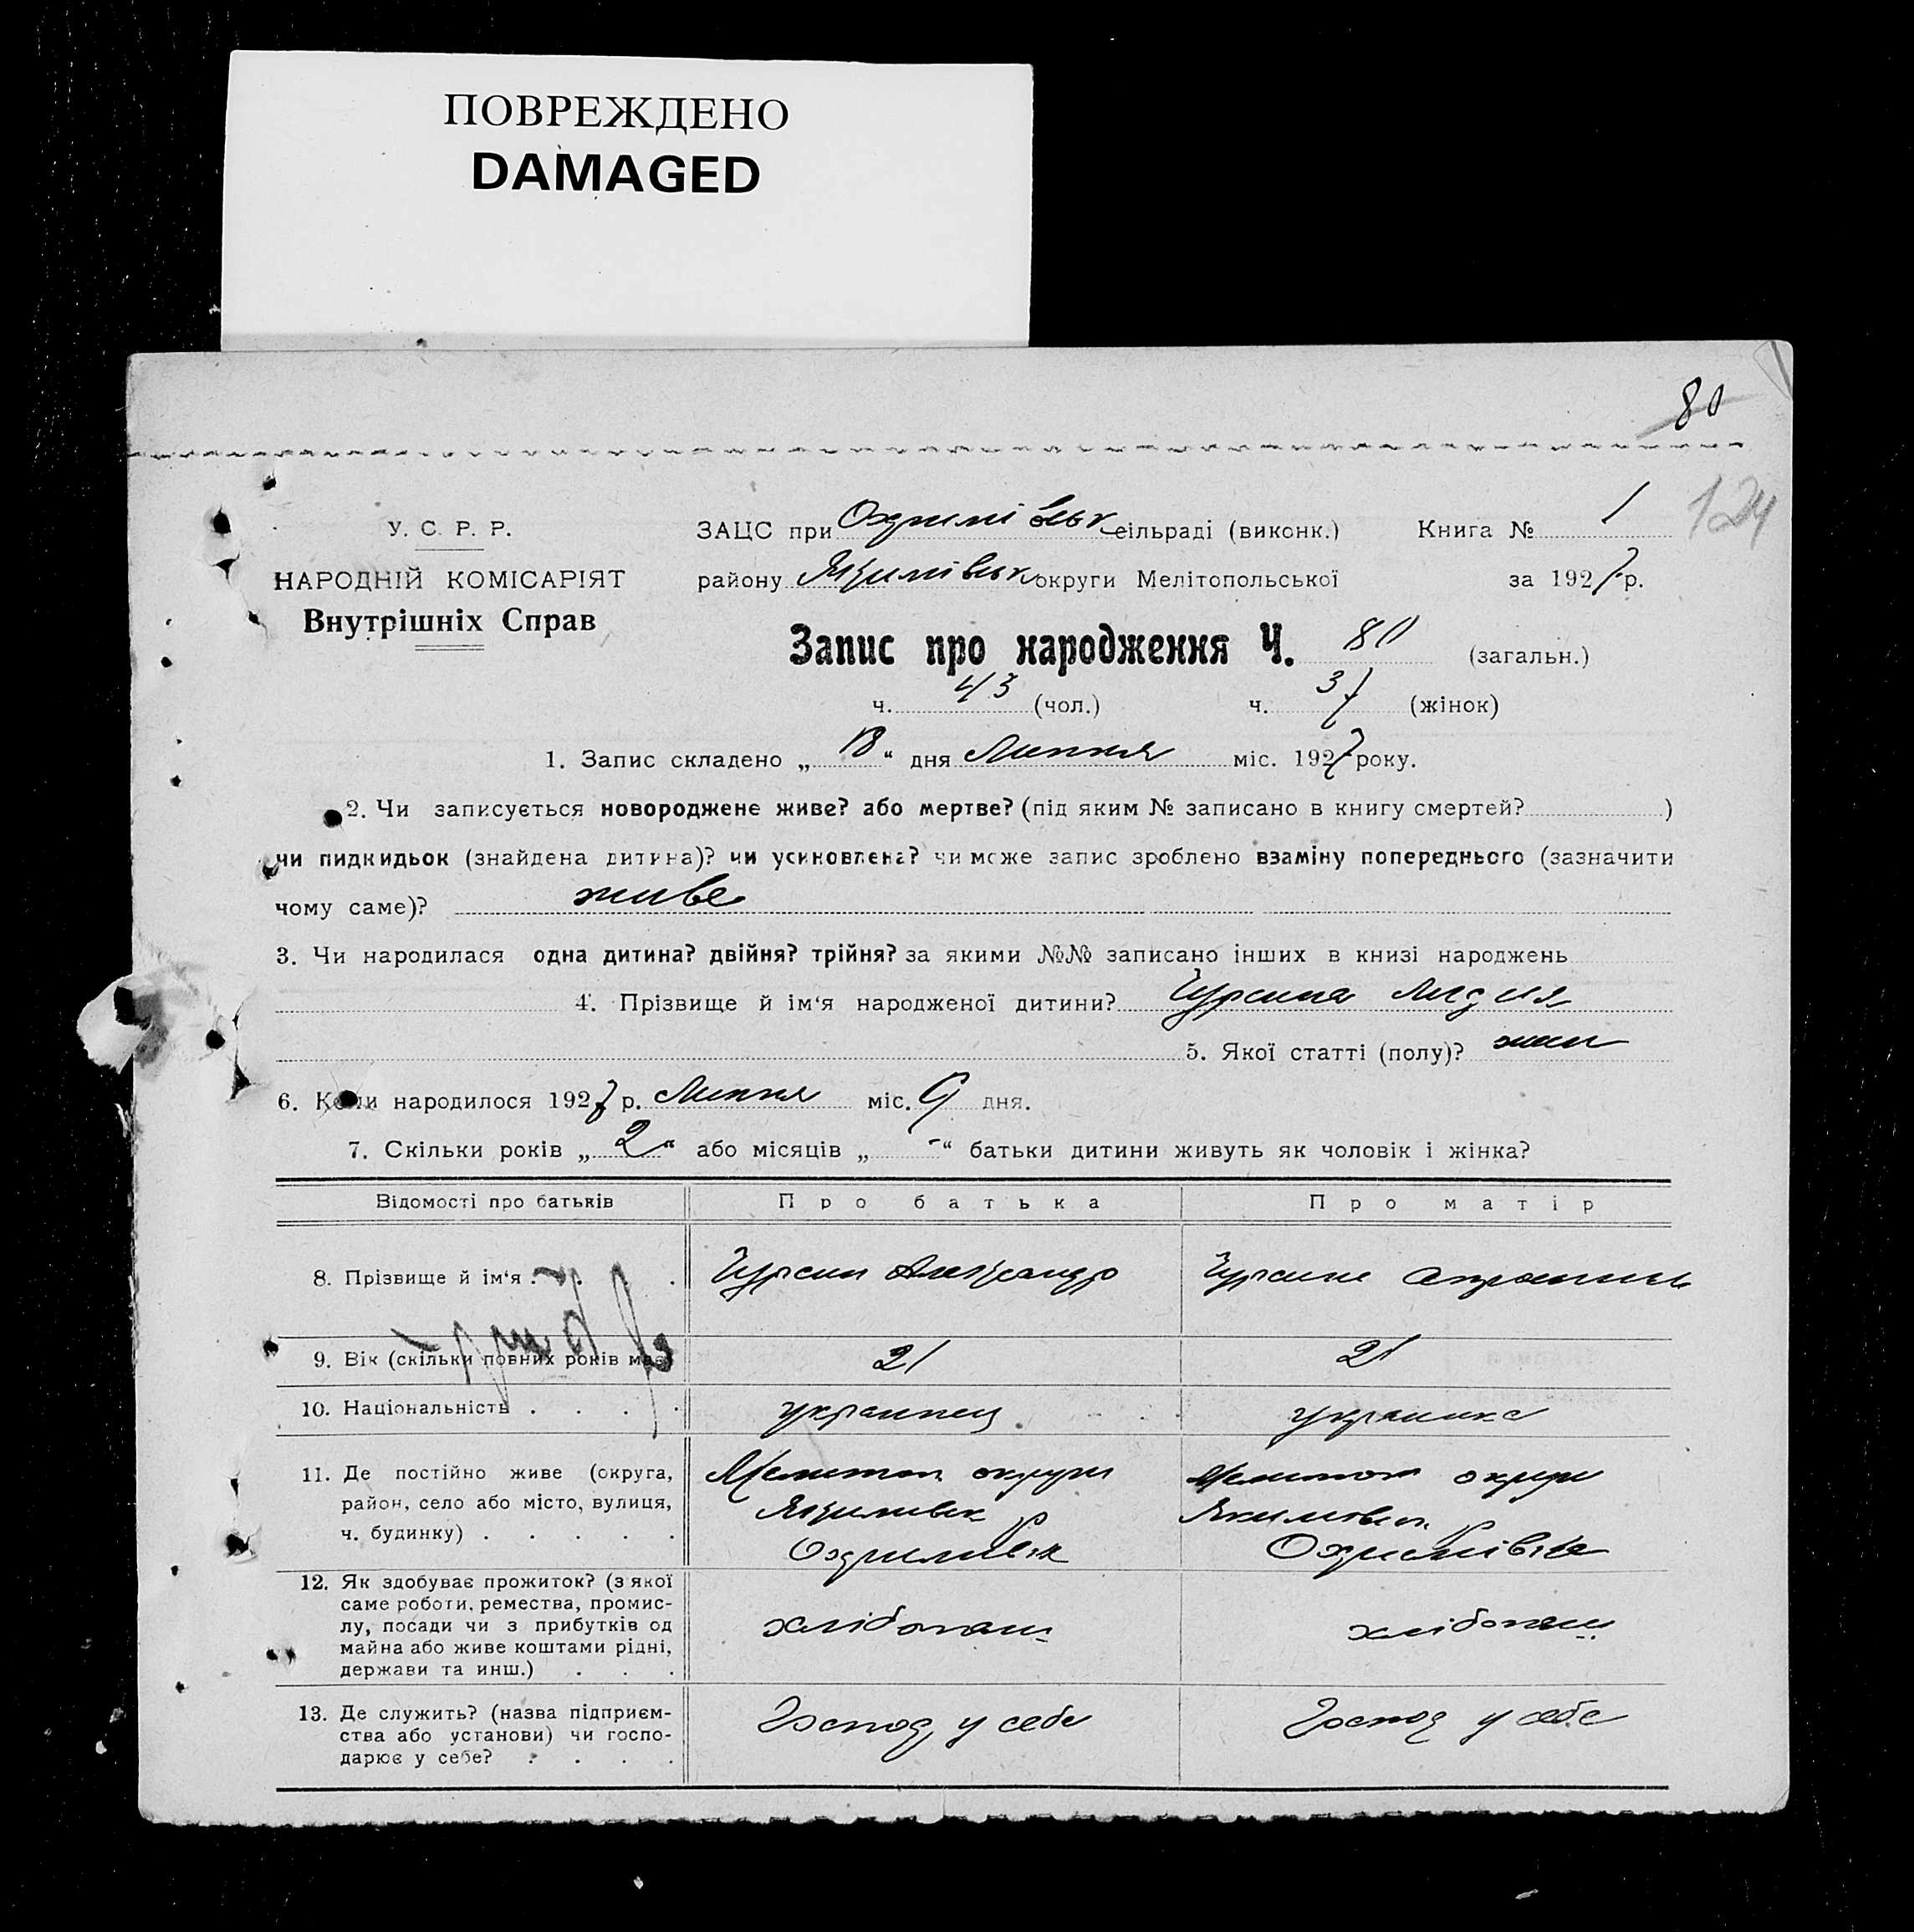 ПОВРЕЖДЕНО
DAMAGED
80
124
У. С. Р. Р.
НАРОДНІЙ КОМІСАРІЯТ
Внутрішніх Справ
ЗАЦС при Охрімівськ сільраді (виконк.) Книга № 1
району Якимівськ округи Мелітопольської за 1927 р.
Запис про народження Ч. 80 (загальн.)
ч. 43 (чол.) ч. 37 (жінок)
1. Запис складено „ “ дня Липня міс. 1927 року.
2. Чи записується новороджене живе? або мертве? (під яким № записано в книгу смертей? )
чи пидкидьок (знайдена дитина)? чи усиновлена? чи може запис зроблено взаміну попереднього (зазначити
чому саме)? живе
3. Чи народилася одна дитина? двійня? трійня? за якими №№ записано інших в книзі народжень
4. Прізвище й ім‘я народженої дитини? Чурсина Лидия
5. Якої статті (полу)? жін
6. Коли народилося 1927 р. Липня міс. 9 дня.
7. Скільки років „ 2 “ або місяців „ - “ батьки дитини живуть як чоловік і жінка?
Відомості про батьків Про батька Про матір
8. Прізвище й ім‘я . . . . Чурсин Александр Чурсина
9. Вік (скільки повних років має) 21 21
10. Національність . . . . украинец украинка
11. Де постійно живе (округа, Мелитоп округи Мелитоп округи
район, село або місто, вулиця, Якимівськ р Якимовск р
ч. будинку) . . . . . Охримівка Охримівка
12. Як здобуває прожиток? (з якої
саме роботи, ремества, промис-
лу, посади чи з прибутків од хлібопаш хлібопаш
майна або живе коштами рідні,
держави та инш.) . . .
13. Де служить? (назва підприєм- Господ у себе Господ у себе
ства або установи) чи госпо-
дарює у себе? . . . .